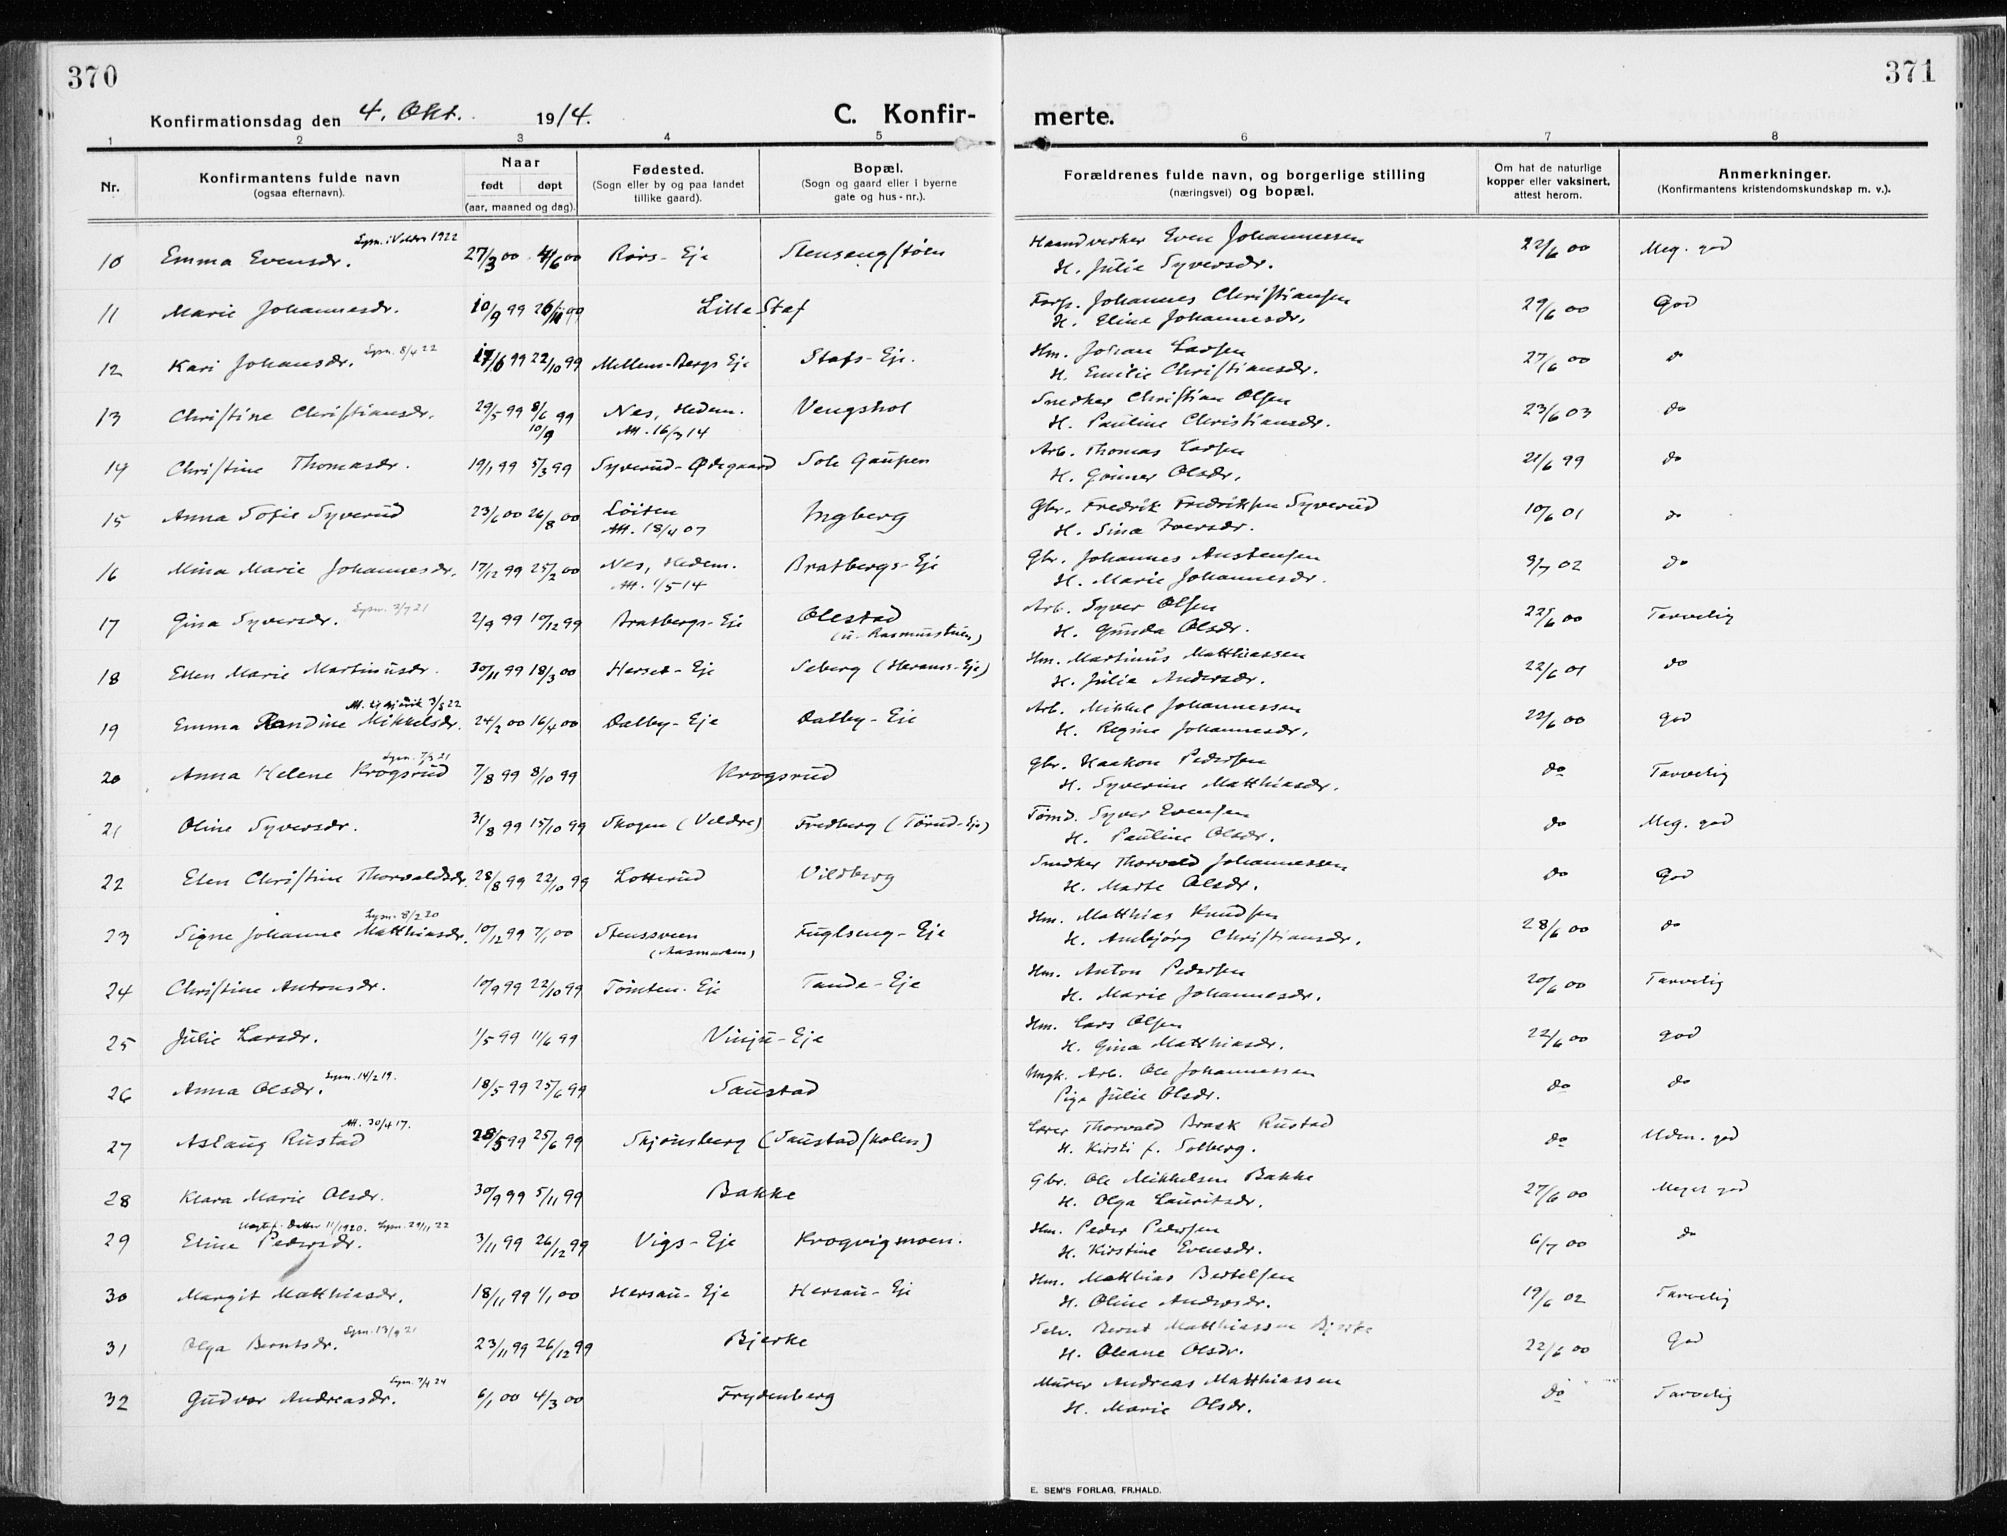 370
371
Konfirmationsdag den 4. Okt. 1914.
C. Konfir-
merte.
1 2 3 4 5 6 7 8
Nr.
Konfirmantens fulde navn
(ogsaa efternavn).
Naar
født døpt
(aar, maaned og dag).
Fødested.
(Sogn eller by og paa landet
tillike gaard).
Bopæl.
(Sogn og gaard eller i byerne
gate og hus-nr.).
Forældrenes fulde navn, og borgerlige stilling
(næringsvei) og bopæl.
Om hat de naturlige
kopper eller vaksinert,
attest herom.
Anmerkninger.
(Konfirmantens kristendomskundskap m. v.).
Lysn. i Veldre 1922
10 Emma Evensdr. 27/3 00 4/6 00 Rørs-Eje Stensengstøen Haandverker Even Johannessen 22/6 00 Meg. god
H. Julie Syversdr.
11 Marie Johannesdr. 10/9 99 26/11 99 Lille Staf Forp. Johannes Christiansen 29/6 00 God
H. Eline Johannesdr.
12 Kari Johansdr. Lysn. 8/4 22 17/6 99 22/10 99 Mellem-Bergs Eje Stafs-Eje. Hm. Johan Larsen 27/6 00 do
H. Emilie Christiansdr.
13 Christine Christiansdr. 29/5 99 8/6 99 Nes, Hedem. Vengshol Snedker Christian Olsen 23/6 03 do
10/9 Att. 16/3 14 H. Pauline Christiansdr.
14 Christine Thomasdr. 19/1 99 5/3 99 Syverud-Ødegaard Sole Gaupen Arb. Thomas Larsen 21/6 99 do
H. Gunner Olsdr.
15 Anna Sofie Syverud 23/6 00 26/8 00 Løiten Ingberg Gbr. Fredrik Fredriksen Syverud 10/6 01 do
Att. 18/4 07 H. Sina Iversdr.
16 Mina Marie Johannesdr. 17/12 99 25/2 00 Nes, Hedem. Bratbergs-Eje Gbr. Johannes Austensen 3/7 02 do
Att. 1/5 14 H. Marie Johannesdr.
17 Gina Syversdr. Lysn. 3/7 21 2/9 99 10/12 99 Bratbergs-Eje Olestad Arb. Syver Olsen 22/6 00 Tarvelig
(u. Rasmusstuen) H. Gunda Olsdr.
18 Ellen Marie Martinusdr. 30/11 99 18/3 00 Herset-Eje Seberg (Heraus-Eje) Hm. Martinus Matthiassen 22/6 01 do
H. Julie Andersdr.
Att. til Gjøvik 3/8 22
19 Emma Randine Mikkelsdr. 24/2 00 16/4 00 Dalby-Eje Dalby-Eje Arb. Mikkel Johannessen 22/6 00 god
H. Regine Johannesdr.
20 Anna Helene Krogsrud 7/8 99 8/10 99 Krogsrud Gbr. Haakon Pedersen do Tarvelig
H. Syverine Matthiasdr.
21 Oline Syversdr. 31/8 99 15/10 99 Skogen (Veldre) Fredberg (Tørud-Eje) Tømd. Syver Evensen do Meg. god
H. Pauline Olsdr.
22 Elen Christine Thorvaldsdr. 28/8 99 22/10 99 Lotterud Vildberg Snedker Thorvald Johannessen do God
H. Marte Olsdr.
Lysn. 8/2 20
23 Signe Johanne Matthiasdr. 10/12 99 7/1 00 Stenssveen Fuglseng-Eje Hm. Matthias Knudsen 28/6 00 do
H. Anbjørg Christiansdr.
24 Christine Antonsdr. 10/9 99 22/10 99 Tømten-Eje Tande-Eje Hm. Anton Pedersen 20/6 00 Tarvelig
H. Marie Johannesdr.
25 Julie Larsdr. 1/5 99 11/6 99 Vinju-Eje Hm. Lars Olsen 22/6 00 god
H. Gina Matthiasdr.
26 Anna Olsdr. Lysn. 14/2 19. 18/5 99 25/6 99 Saustad Ungk. Arb. Ole Johannessen do do
Pige Julie Olsdr.
Att. 30/4 17.
27 Aslaug Rustad 28/5 99 25/6 99 Skjønsberg (Saustad skolen) Lærer Thorvald Brask Rustad do Udm. god
H. Kirsti f. Solberg.
28 Klara Marie Olsdr. 30/9 99 5/11 99 Bakke Gbr. Ole Mikkelsen Bakke 27/6 00 Meget god
H. Olga Lauritsdr.
Uegtef. Datter 11/1920. Lysn. 29/11 22
29 Eline Pedersdr. 3/11 99 26/12 99 Vigs-Eje Krogvigmoen. Hm. Peder Pedersen 6/7 00 do
H. Kirstine Evensdr.
30 Margit Matthiasdr. 18/11 99 1/1 00 Hersau-Eje Hersau-Eje Hm. Matthias Bertelsen 19/6 02 Tarvelig
H. Oline Andersdr.
31 Olga Berntsdr. Lysn. 13/9 21 23/11 99 26/12 99 Bjerke Selv. Bernt Matthiassen Bjerke 22/6 00 God
H. Oleane Olsdr.
32 Gudvor Andreasdr. Lysn. 7/4 24 6/1 00 4/3 00 Frydenberg Murer Andreas Matthiassen do Tarvelig
H. Marie Olsdr.
E. SEM'S FORLAG, FR.HALD.